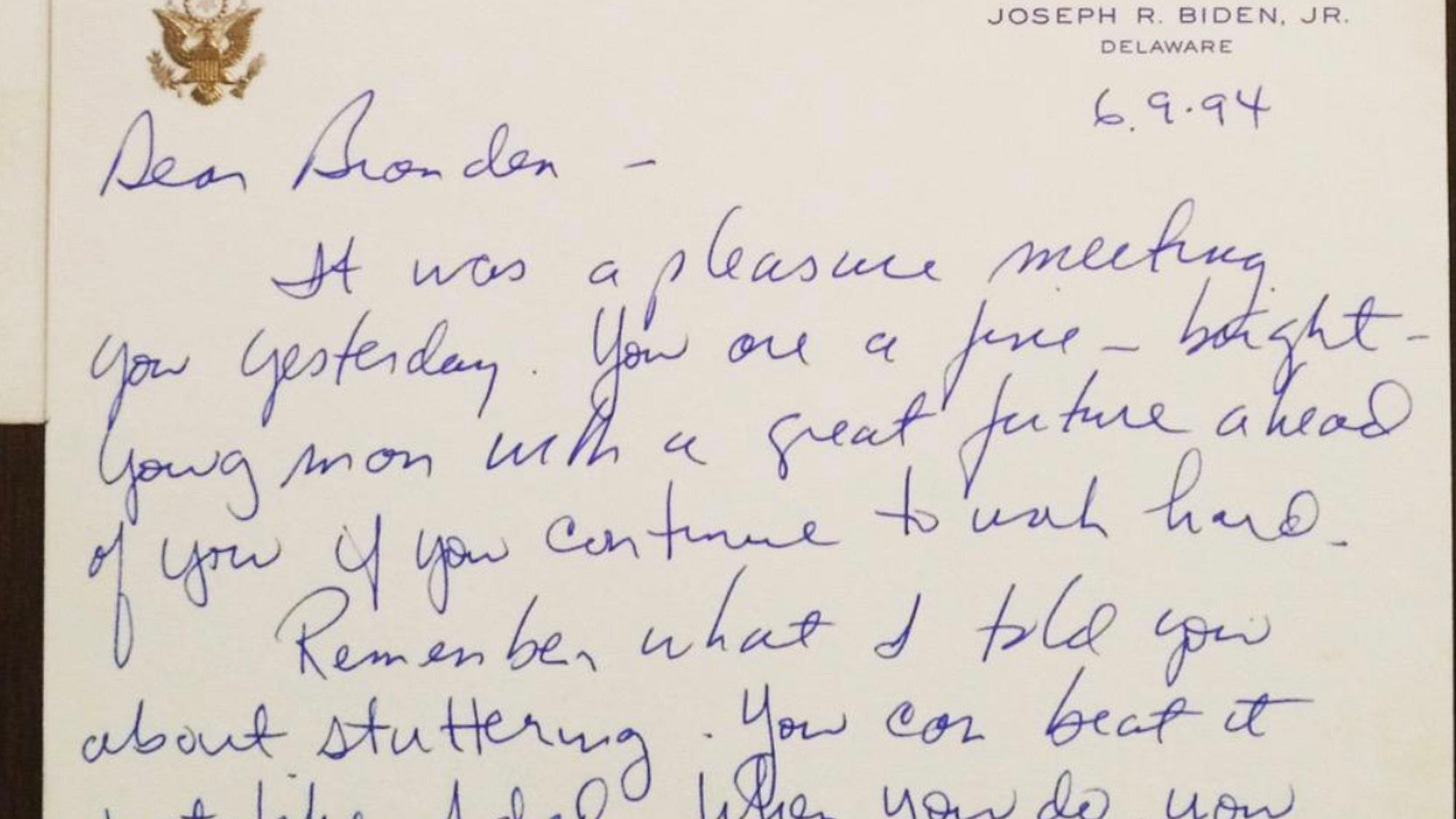 JOSEPH R. BIDEN, JR.
DELAWARE
6.9.94
Dear Branden –
It was a pleasure meeting
you yesterday. You are a fine – bright –
young man with a great future ahead
of you if you continue to work hard.
Remember what I told you
about stuttering. You can beat it
just like I did. When you do, you